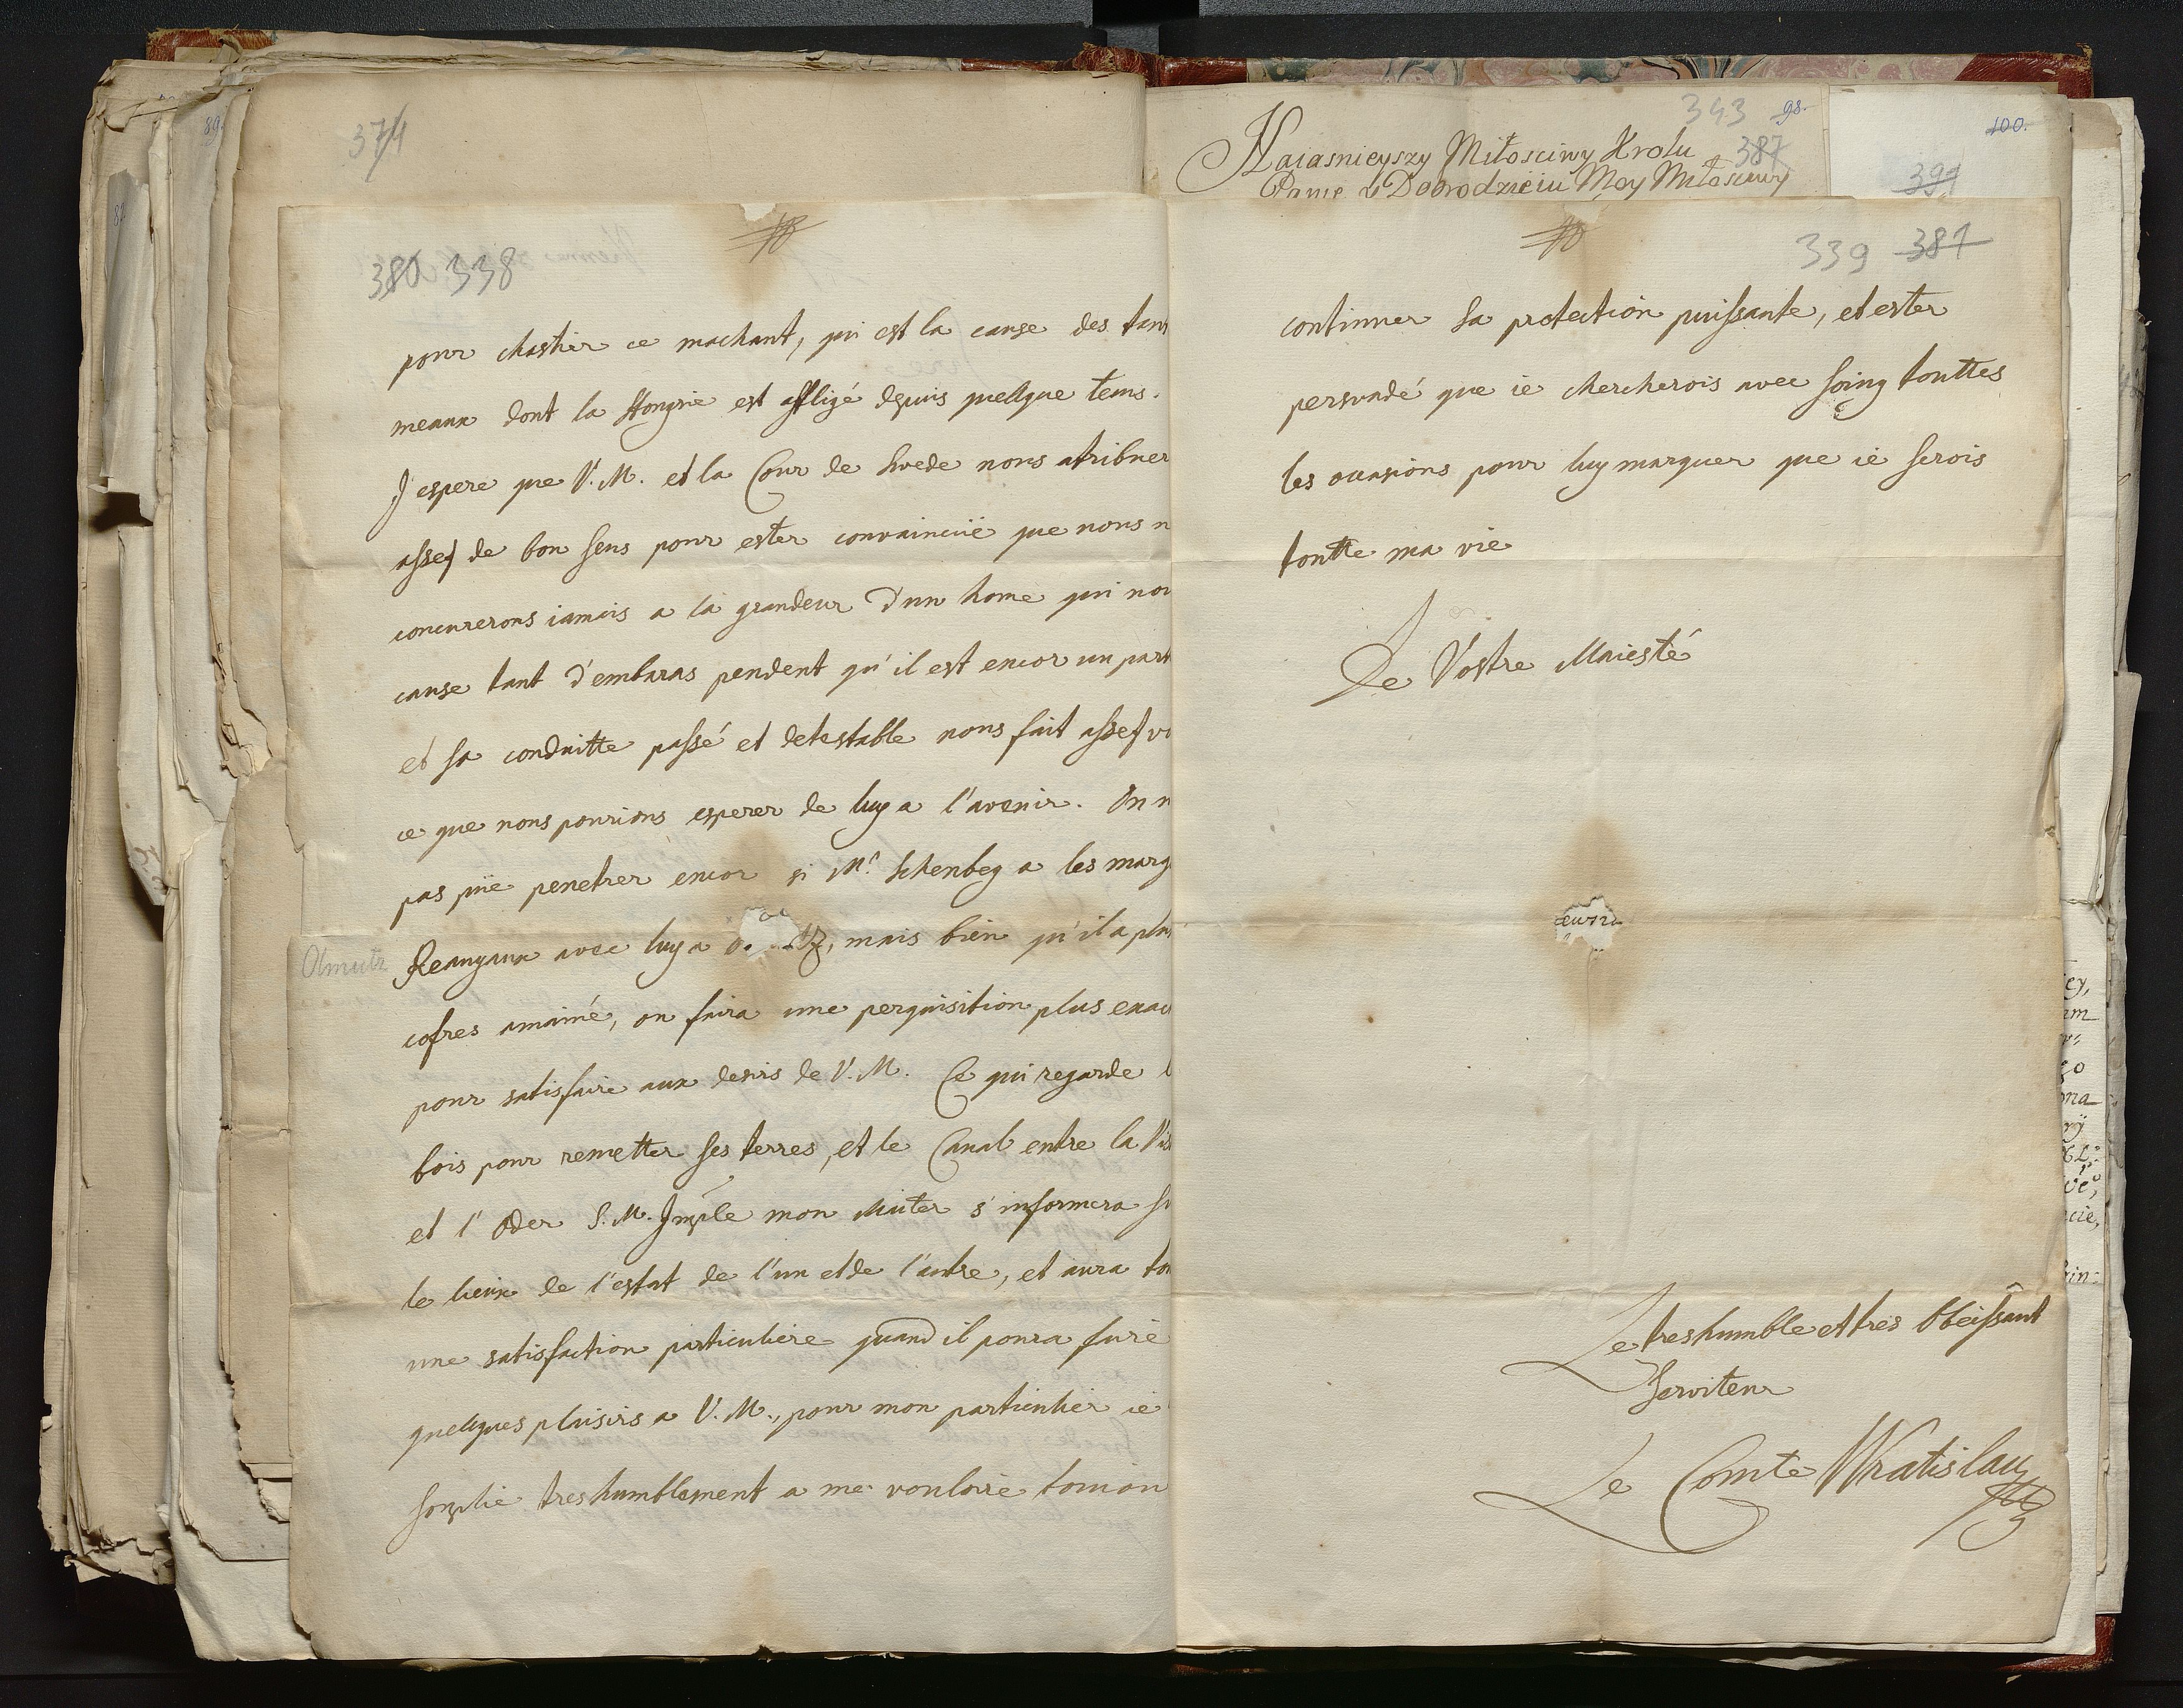 374
343 98.
Naiasnieyszy Miłosciwy Krolu 387
Panie y Dobrodzieiu Moy Miłosciwy
100.
391
89.
380 338
pour chastier ce machant, qui est la cause des tant
meaux dont la Hongrie est affligé depuis quellque tems.
J espere que V. M. et la Cour de Swede nous atribuer
assez de bon sens pour ester convaincüe que nous n
concurerons iamais a la grandeur d'un home qui nou
cause tant d'embaras pendent qu'il est encor un part
et sa conduitte passé et detestable nous fait assez vo
ce que nous pourions esperer de luy a l'avenir. On n
pas püe penetrer encor si Mr. Schenbeg a les marq
Olmutz
avec luy a o tz, mais bien qu'il a plus
cofres amainé, on faira une perquisition plus exac
pour satisfaire aux desirs de V. M. Ce qui regarde l
bois pour remetter ses terres, et le Canal entre la Vis
et l' Oder S. M. Imple mon Maiter s'informera su
le lieux de l'estat de l'un et de l'autre, et aura tou
une satisfaction particuliere quand il poura faire
quelques plaisirs a V. M., pour mon particulier ie
souplie tres humblement a me vouloire touiou
339 387
continuer sa protection puissante, et ester
persuadé que ie chercherois avec soing touttes
les ocasions pour luy marquer que ie serois
toutte ma vie
De Vostre Maiesté
Le tres humble et tres Obeissant
Serviteur
Le Comte Wratislau